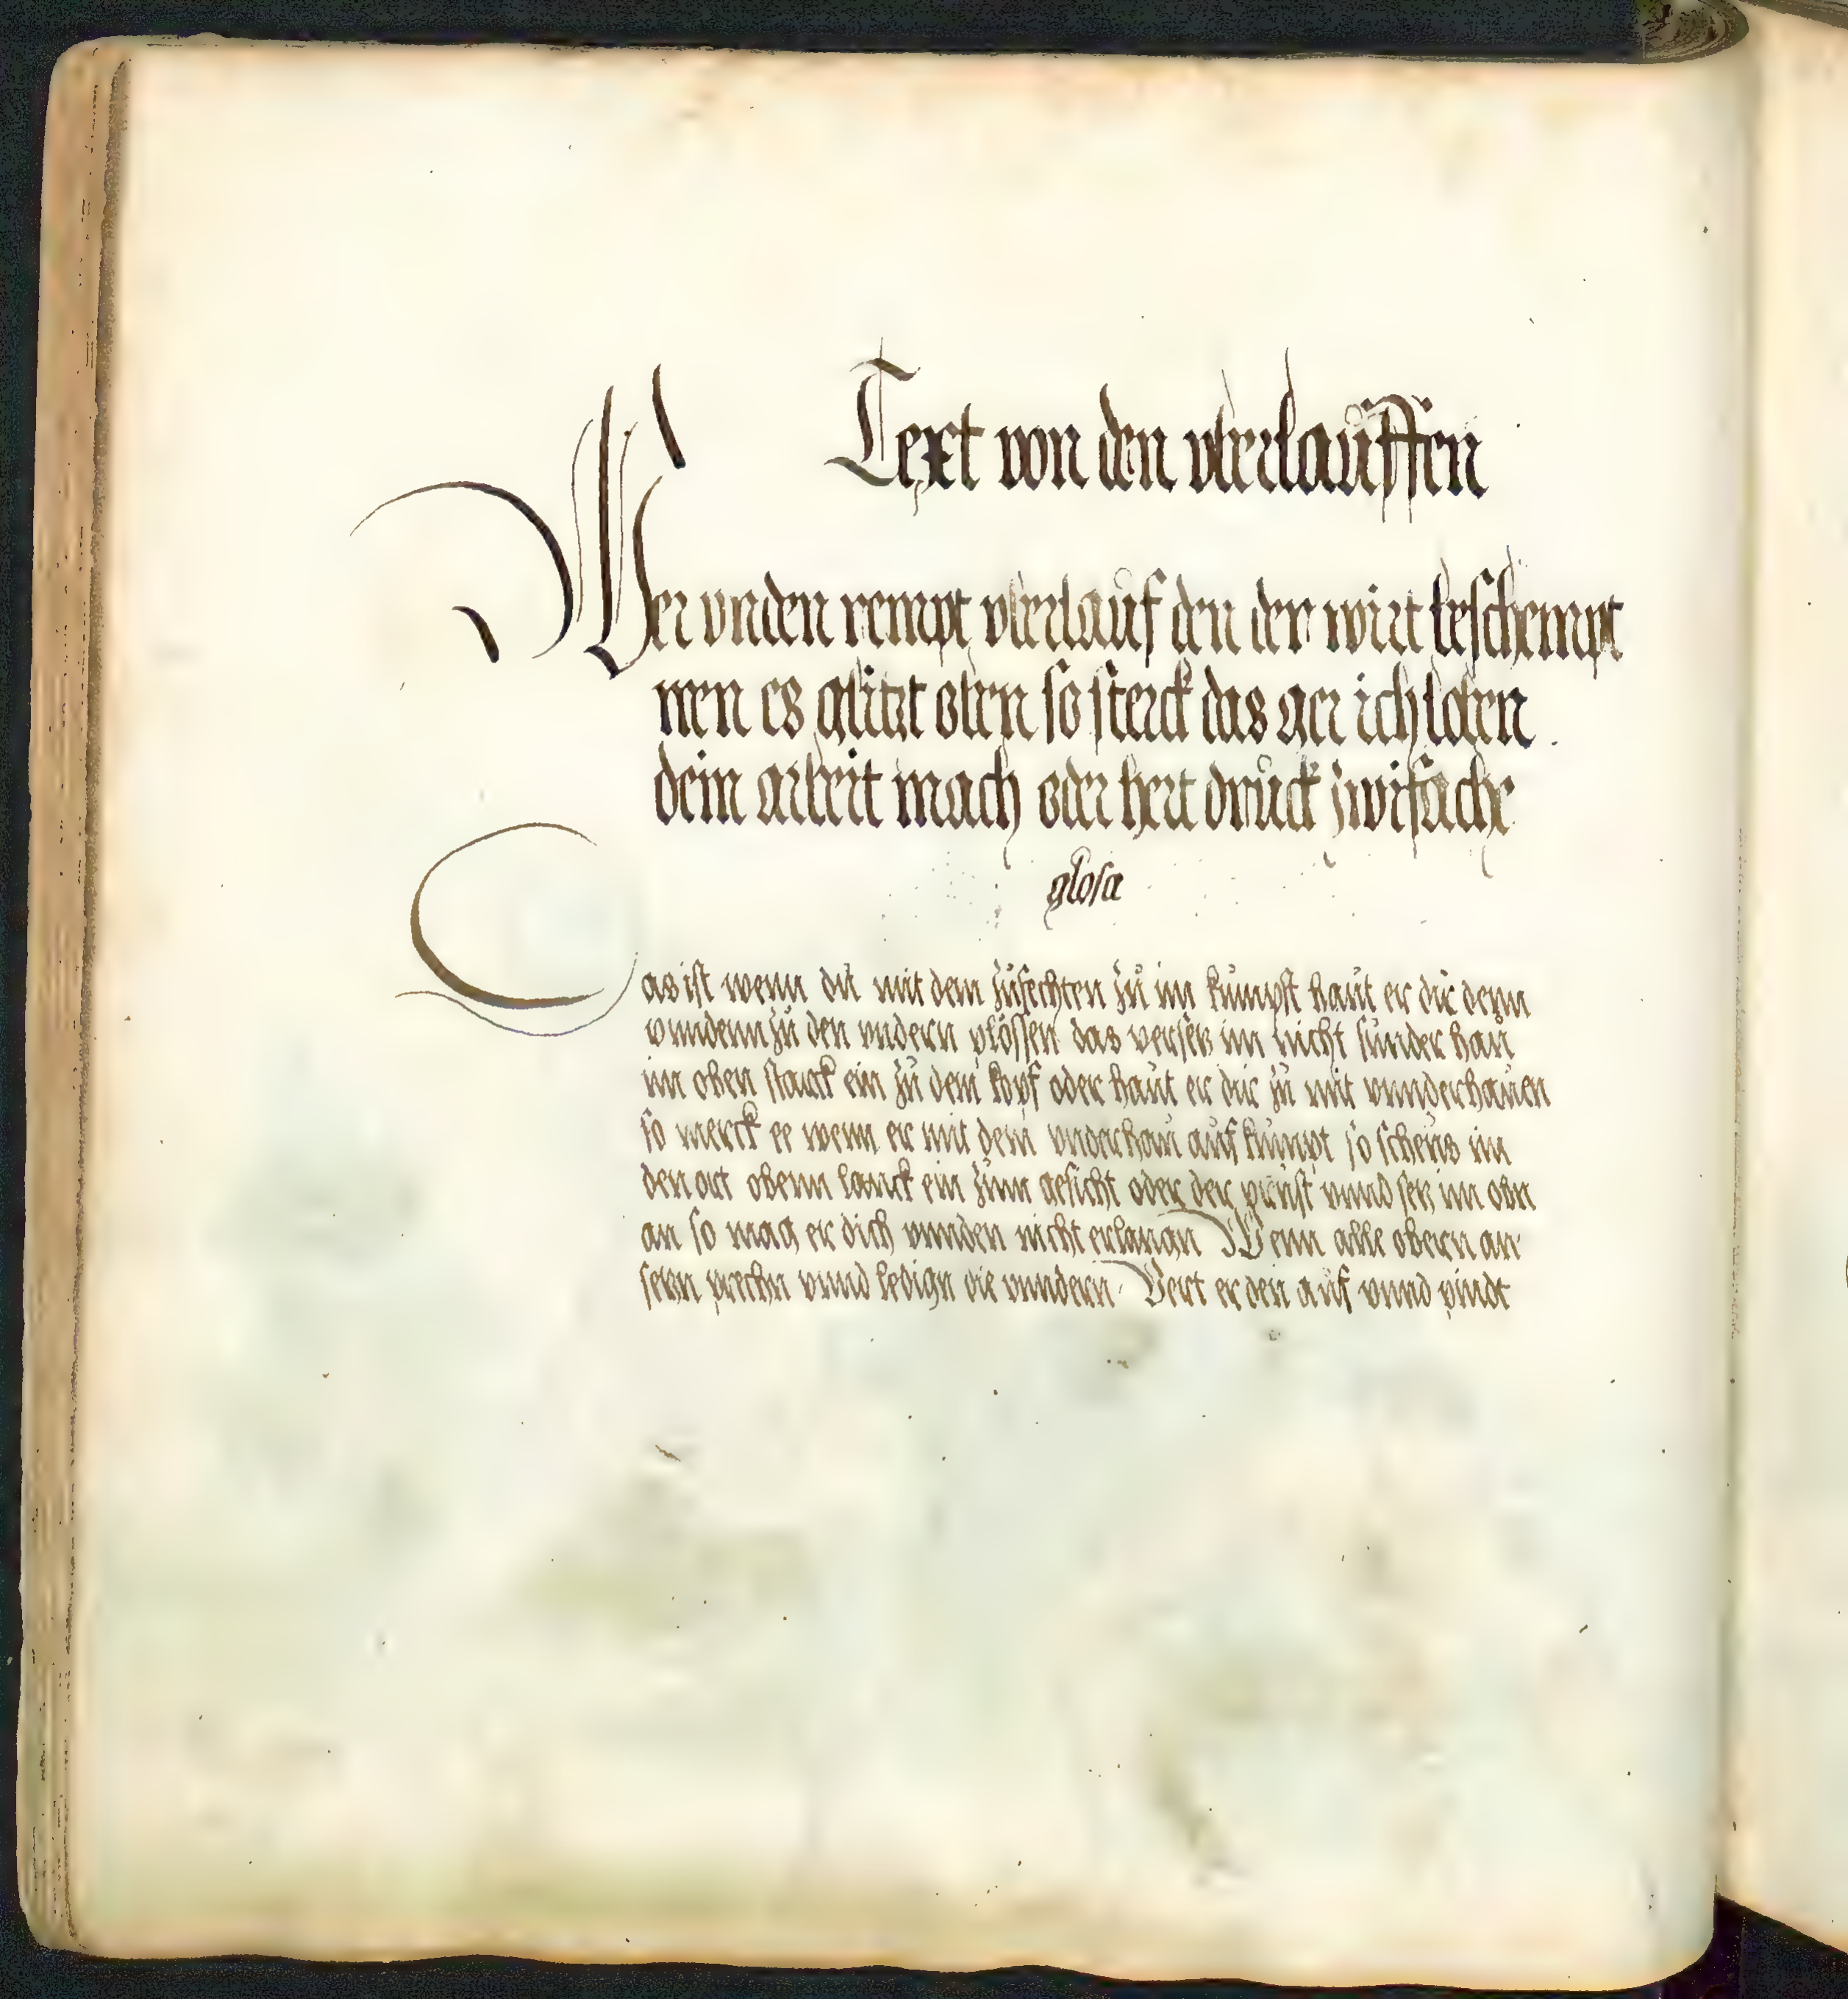 Text von den vberlauffen
Wer vnden rempt vberlauf den der wirt beschempt
wen es glitzt oben so sterck das ger ich loben
dein arbeit mach oder hert druck zwifache
glosa
Das ist wenn dů mit dem zůfechten zů im kůmpst haůt er dir denn
vnndenn zů den vndern plössen das versetz im nicht sunder haů
im oben starck ein zů dem kopf oder haůt er dir zů mit vnnderhaůen
so merck ee wenn er mit dem vnderhaů aůf kůmpt so scheůs im
den ort obenn lanck ein zům gesicht oder der průst vnnd setz im obn
an so mag er dich vnnden nicht erlangn Wenn alle obern an
setzn prechn vnnd ledign die vnndern Vert er den aůf vnnd pindt